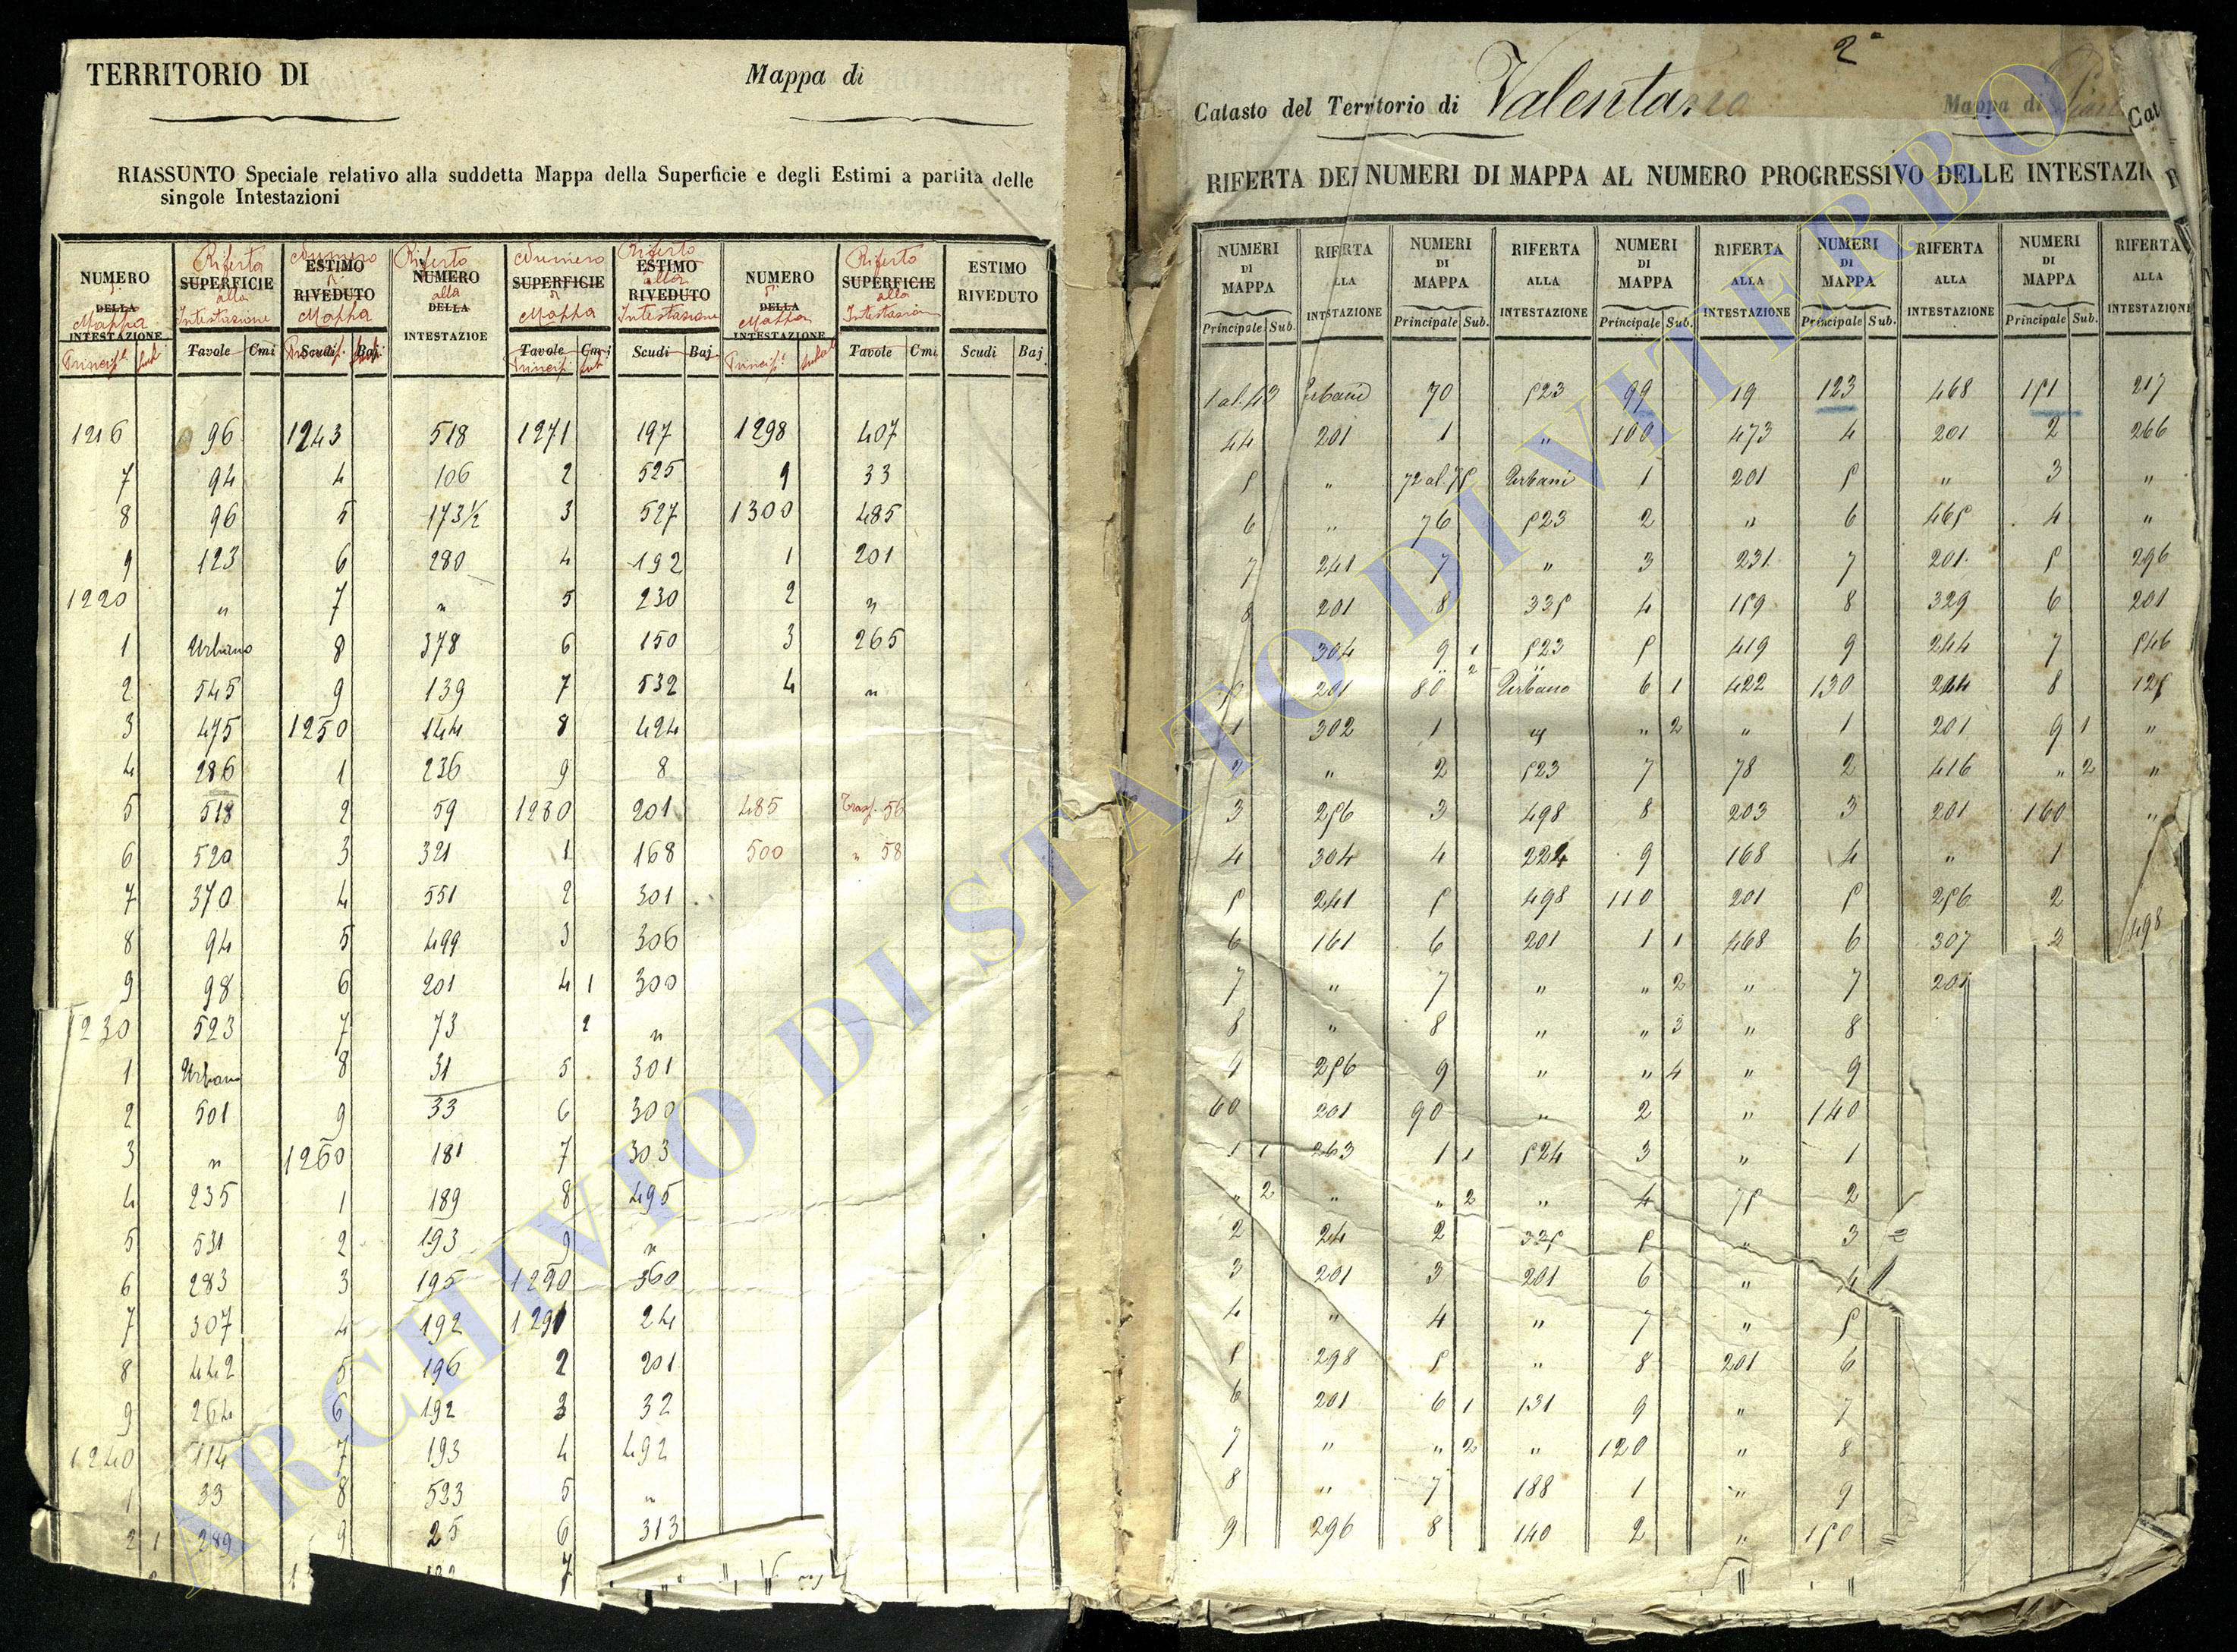 TERRITORIO DI Mappa di
RIASSUNTO Speciale relativo alla suddetta Mappa della Superficie e degli Estimi a partita delle
singole Intestazioni
Riferta Numero Riferto Numero Riferto Riferto
NUMERO SUPERFICIE ESTIMO NUMERO SUPERFICIE ESTIMO NUMERO SUPERFICIE ESTIMO
di alla di alla di alla di alla
DELLA Intestazione RIVEDUTO DELLA Mappa RIVEDUTO DELLA Intestazione RIVEDUTO
Mappa Mappa Intestazione Mappa
INTESTAZIONE INTESTAZIOE INTESTAZIONE
Tavole Cmi Scudi Baj. Tavole Cmi Scudi Baj. Tavole Cmi Scudi Baj
1216 96 1243 518 1271 197 1298 407
7 94 4 106 2 525 9 33
8 96 5 173½ 3 527 1300 485
9 123 6 280 4 192 1 201
1220 " 7 " 5 230 2 "
1 Urbano 8 378 6 150 3 265
2 545 9 139 7 532 4 "
3 475 1250 144 8 424
4 286 1 236 9 8
5 518 2 59 1280 201 485 Trasp. 56
6 520 3 321 1 168 500 " 58
7 370 4 551 2 301
8 94 5 499 3 306
9 98 6 201 4 1 300
1230 523 7 73 2 "
1 Urbano 8 31 5 301
2 501 9 33 6 300
3 " 1260 181 7 303
4 235 1 189 8 495
5 531 2 193 9 "
6 283 3 195 1290 360
7 307 4 192 1291 24
8 442 5 196 2 201
9 264 6 192 3 32
1240 114 7 193 4 492
1 33 8 523 5 "
2 1 289 9 25 6 313
7
2ª
Catasto del Territorio di Valentano Mappa di
RIFERTA DEI NUMERI DI MAPPA AL NUMERO PROGRESSIVO DELLE INTESTAZI
NUMERI RIFERTA NUMERI RIFERTA NUMERI RIFERTA NUMERI RIFERTA NUMERI RIFERTA
DI ALLA DI ALLA DI ALLA DI ALLA DI ALLA
MAPPA INTESTAZIONE MAPPA INTESTAZIONE MAPPA INTESTAZIONE MAPPA INTESTAZIONE MAPPA INTESTAZION
Principale Sub. Principale Sub. Principale Sub. Principale Sub. Principale Sub.
1 al 43 Urbani 70 523 99 19 123 468 151 217
44 201 1 " 100 473 4 201 2 266
5 " 72 al 75 Urbani 1 201 5 " 3 "
6 " 76 523 2 " 6 465 4 "
7 241 7 " 3 231 7 201 5 296
8 201 8 335 4 159 8 329 6 201
304 9 1 523 5 419 9 244 7 546
" 2 "
201 80 Urbano 6 1 422 130 244 8 125
1 302 1 " " 2 " 1 201 9 1 "
2 " 2 523 7 78 2 416 " 2 "
3 256 3 498 8 203 3 201 160 "
4 304 4 224 9 168 4 " 1
5 241 5 498 110 201 5 256 2
6 161 6 201 1 1 468 6 307 3 498
7 " 7 " " 2 " 7 201
8 " 8 " " 3 " 8
9 256 9 " " 4 " 9
60 201 90 " 2 " 140
1 1 263 1 1 524 3 " 1
" 2 " " 2 " 4 75 2
2 24 2 335 5 " 3
3 201 3 201 6 " 4
4 " 4 " 7 " 5
5 298 5 " 8 201 6
6 201 6 1 131 9 " 7
7 " " 2 " 120 " 8
8 " 7 188 1 " 9
9 296 8 140 2 " 150
ARCHIVIO DI STATO DI VITERBO